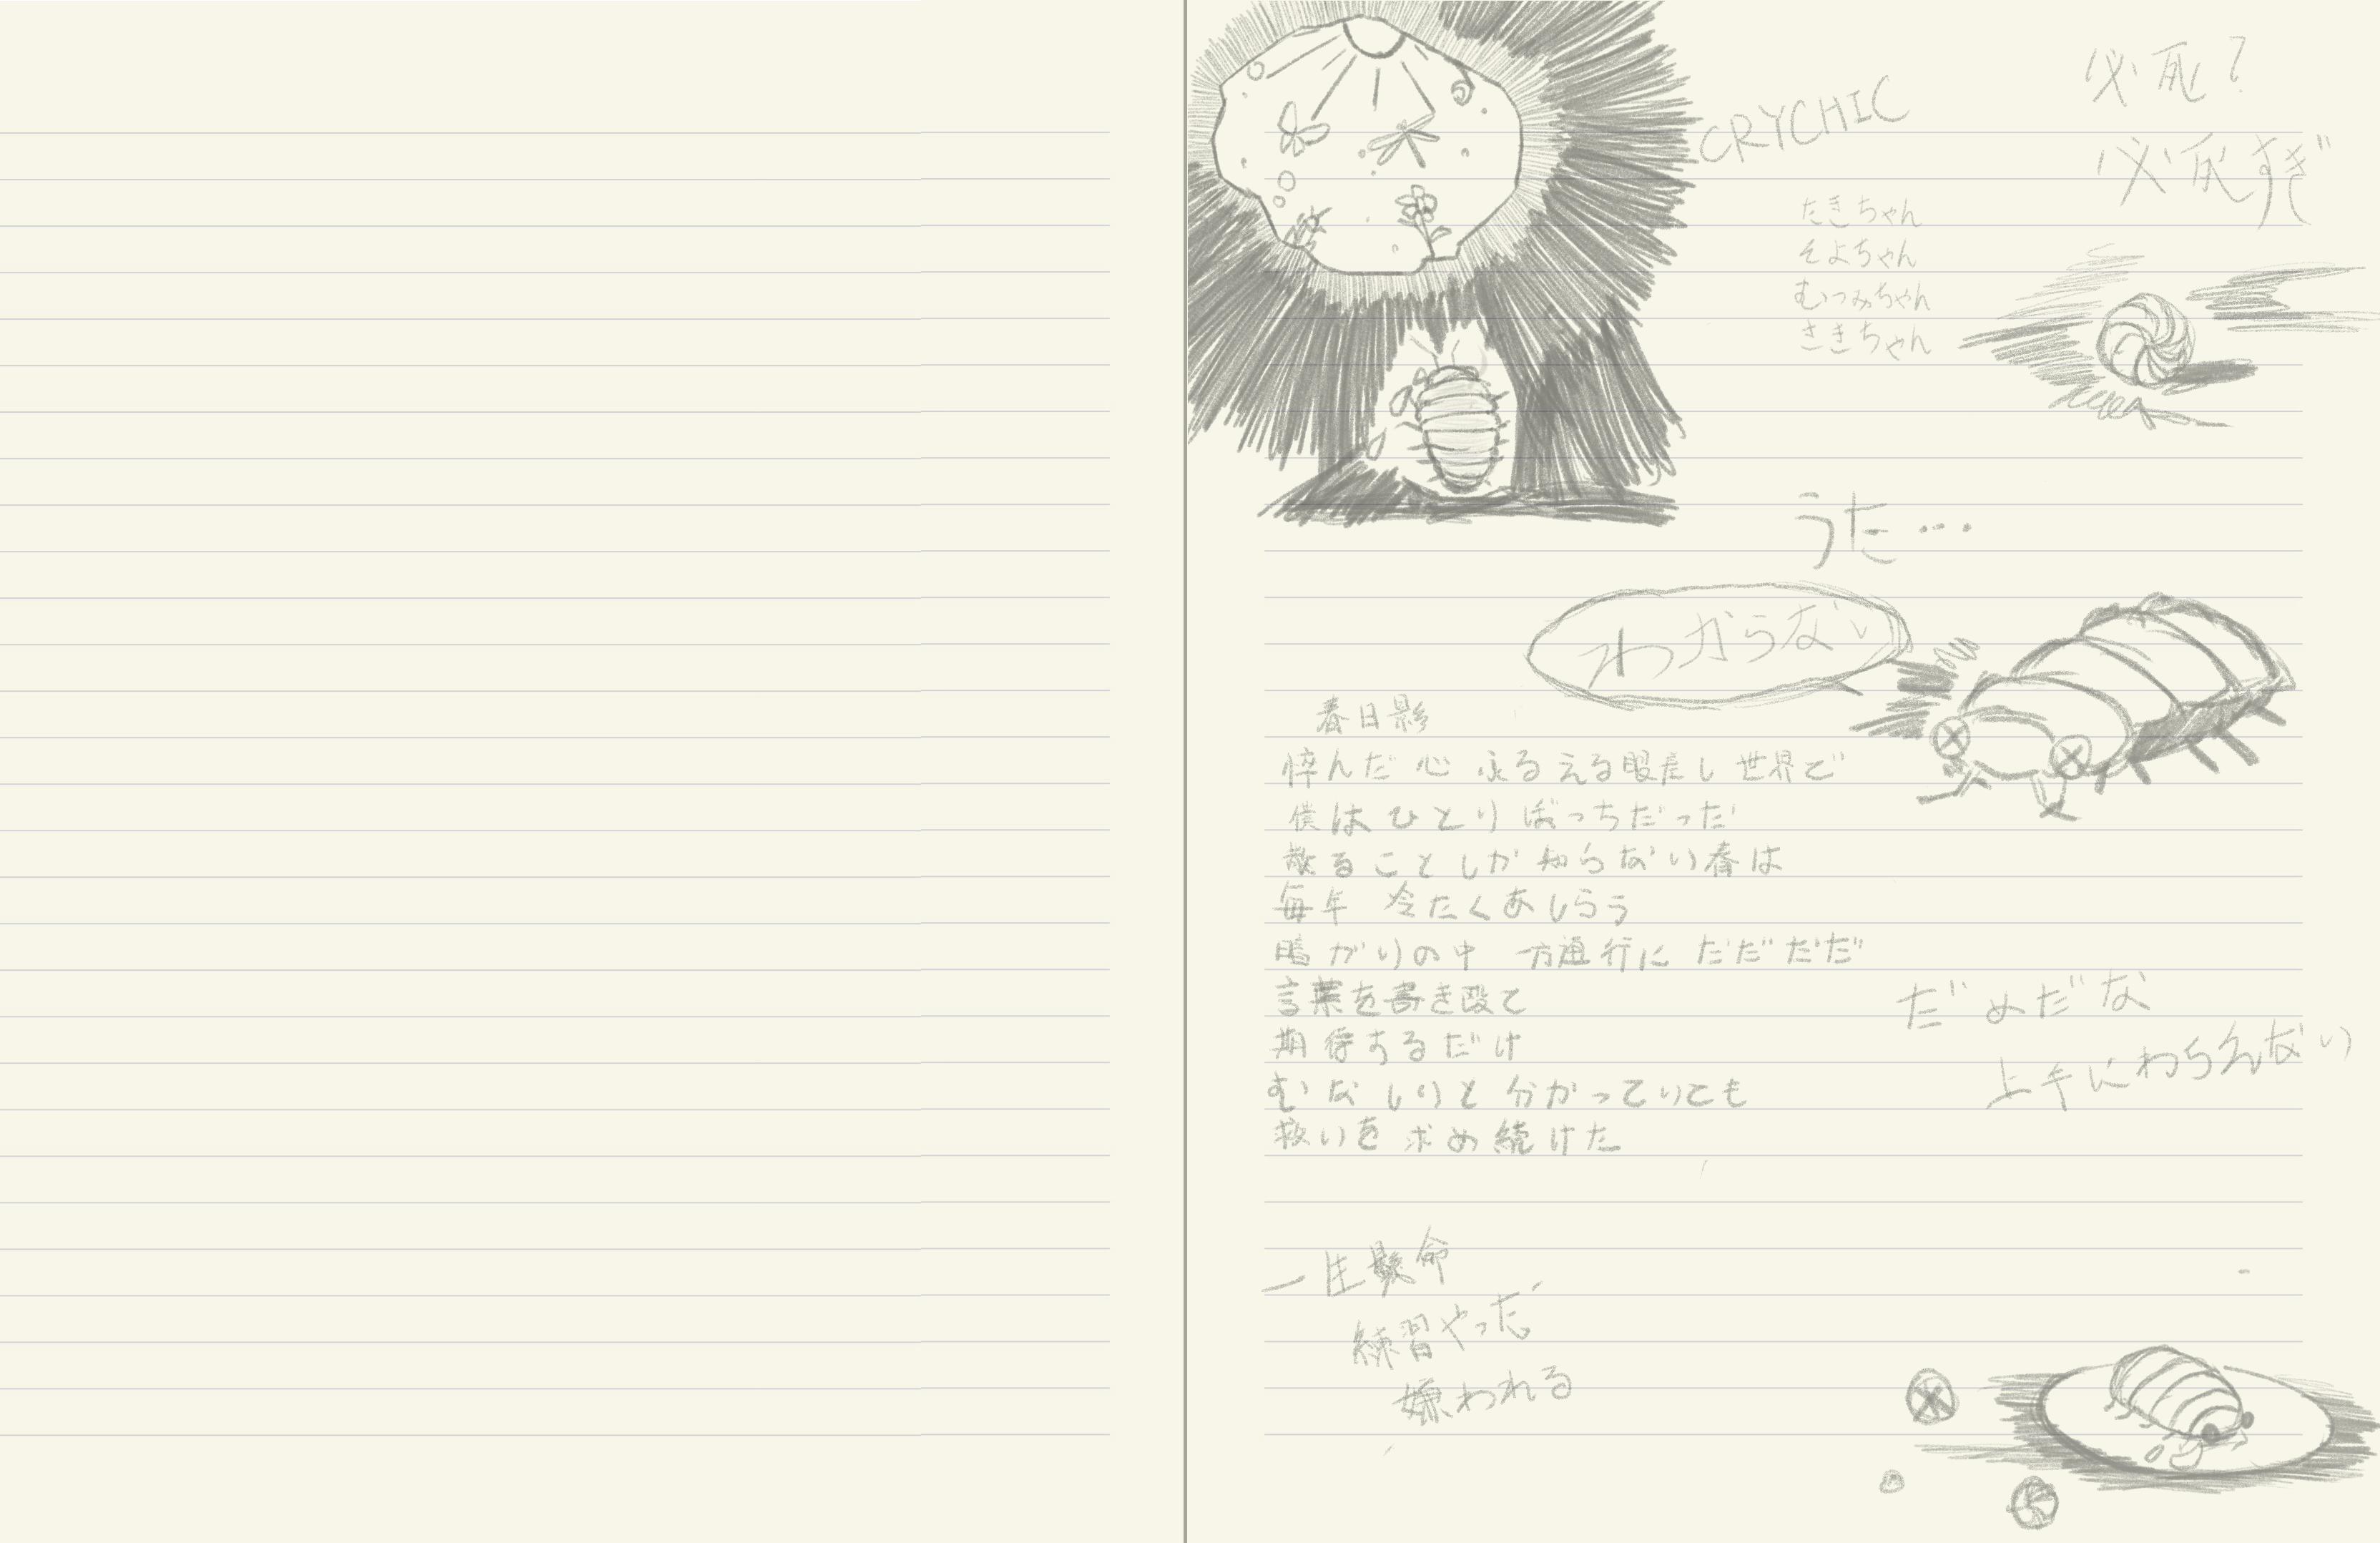 CRYCHIC
必死?
必死すぎ
たきちゃん
そよちゃん
むつみちゃん
さきちゃん
うた…
わからない
春日影
悴んだ心 ふるえる眼差し 世界で
僕はひとりぼっちだった
散ることしか知らない春は
毎年 冷たくあしらう
暗がりの中 一方通行に だだだだ
言葉を書き殴て
期待するだけ
むなしいと分かっていても
救いを求め続けた
だめだな
上手にわらえない
一生懸命
練習やった
嫌われる